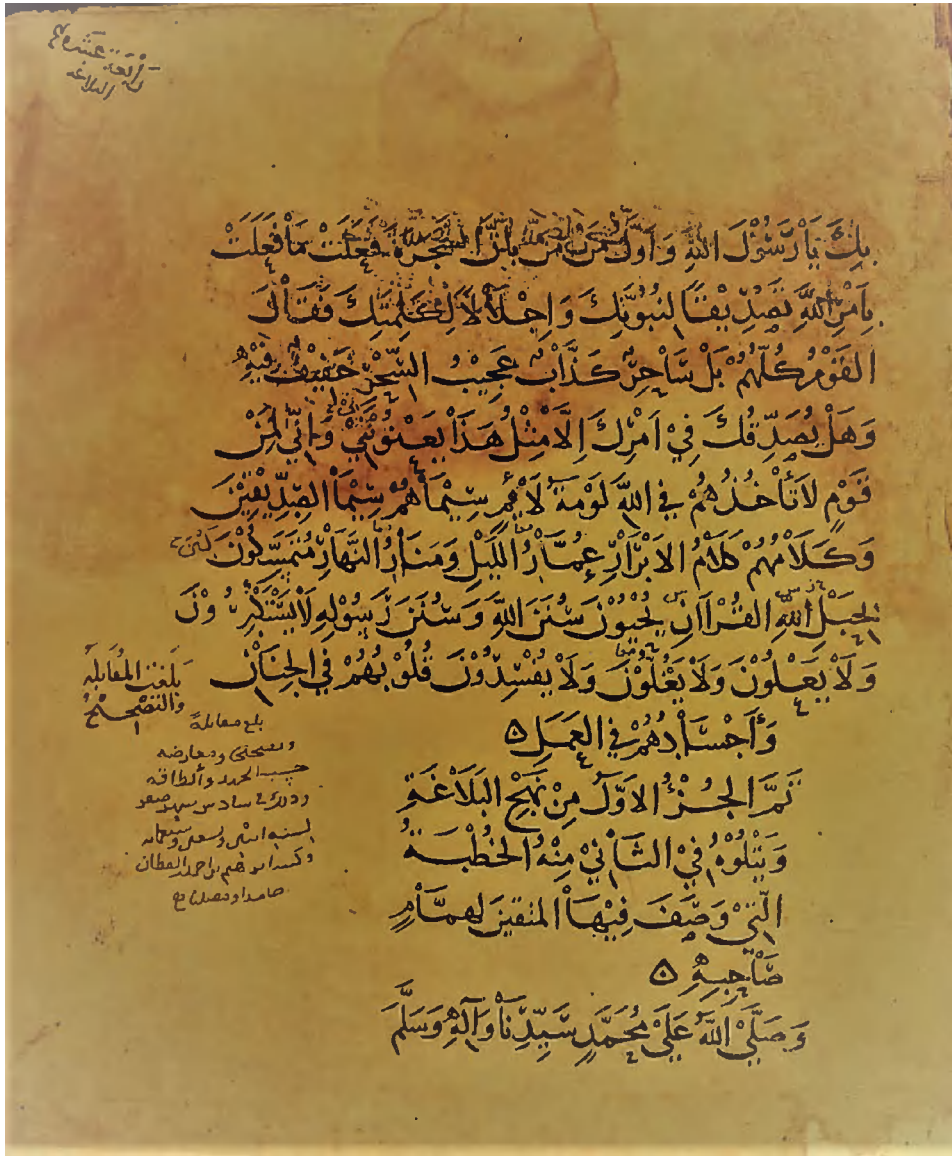 رابعة عشره
البلاغه
بِكَ يَا رَسُوْلَ اللهِ وَاَوَّلُ مَنْ اٰمَنَ بِاَنَّ الشَّجَرَةَ فَعَلَتْ مَا فَعَلَتْ
بِاَمْرِ اللهِ تَصْدِيْقًا لِنُبُوَّتِكَ وَاِجْلَالًا لِكَلِمَتِكَ فَقَالَ
القَوْمُ كُلُّهُمْ بَلْ سَاحِرٌ كَذَّابٌ عَجِيْبُ السِّحْرِ خَفِيْفٌ فِيْهِ
وَهَلْ يُصَدِّقُكَ فِيْ اَمْرِكَ اِلَّا مِثْلُ هٰذَا يَعْنُوْنَنِيْ وَاِنِّيْ لَمِنْ
قَوْمٍ لَا تَأْخُذُهُمْ فِي اللهِ لَوْمَةُ لَائِمٍ سِيْمَاهُمْ سِيْمَا الصِّدِّيْقِيْنَ
وَكَلَامُهُمْ كَلَامُ الاَبْرَارِ عُمَّارُ اللَّيْلِ وَمَنَارُ النَّهَارِ مُتَمَسِّكُوْنَ
بِحَبْلِ اللهِ القُرْاٰنِ يُحْيُوْنَ سُنَنَ اللهِ وَسُنَنَ رَسُوْلِهِ لَا يَسْتَكْبِرُوْنَ
وَلَا يَعْلُوْنَ وَلَا يَغُلُّوْنَ وَلَا يُفْسِدُوْنَ قُلُوْبُهُمْ فِي الجِنَانِ
وَاَجْسَادُهُمْ فِي العَمَلِ ۵
تَمَّ الجُزْءُ الاَوَّلُ مِنْ نَهْجِ البَلَاغَةِ
وَيَتْلُوْهُ فِيْ الثَّانِيْ مِنْهُ الخُطْبَةُ
الَّتِيْ وَصَفَ فِيْهَا المتقين لِهَمَّامٍ
صَاحِبِهِ ۵
وَصَلَّى اللهُ عَلَى مُحَمَّدٍ سَيِّدِنَا وَاٰلِهِ وَسَلَّمَ
بَلَغَتِ المُقَابَلَة
وَالتَّصْحِيْحُ
بلغ مقابلة
وتصحيحا ومعارضه
حسب الجهد والطاقه
وذلك في سادس شهر صفر
لسنه
القطان
حامدا ومصليا